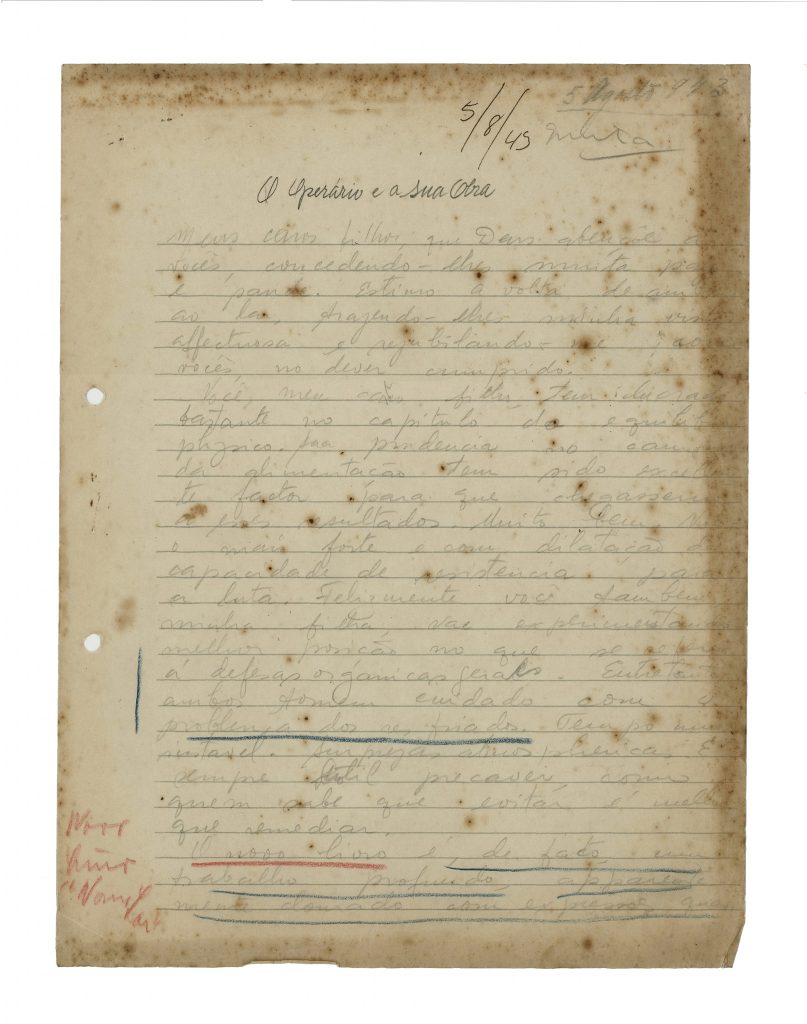 5 Agosto 943
5/8/43
O Operário e a sua Obra
Meus caros filhos, que Deus abençõe a
vocês, concedendo-lhes muita paz
e saude. Estimo a volta de
ao lar, trazendo-lhes minha
affectuosa e rejubilando-me
vocês, no dever cumprido.
Você, meu caro filho, tem
bastante no capitulo do
physico. Sua prudencia no
da alimentação tem sido
te factor para que chegassem
a esses resultados. Muito bem.
o mais forte e com dilatação da
capacidade de resistencia para
a luta. Felizmente você tambem,
minha filha, vae experimentando
melhor posição no que se refere
á defesas orgánicas geraes. Entretanto
ambos tomem cuidado com o
problema dos resfriados. Tempo
atmospherica. É
sempre util precaver, como
quem sabe que evitar é
que remediar.
O novo livro é, de fato, um
trabalho profundo,
com
Novo
livro